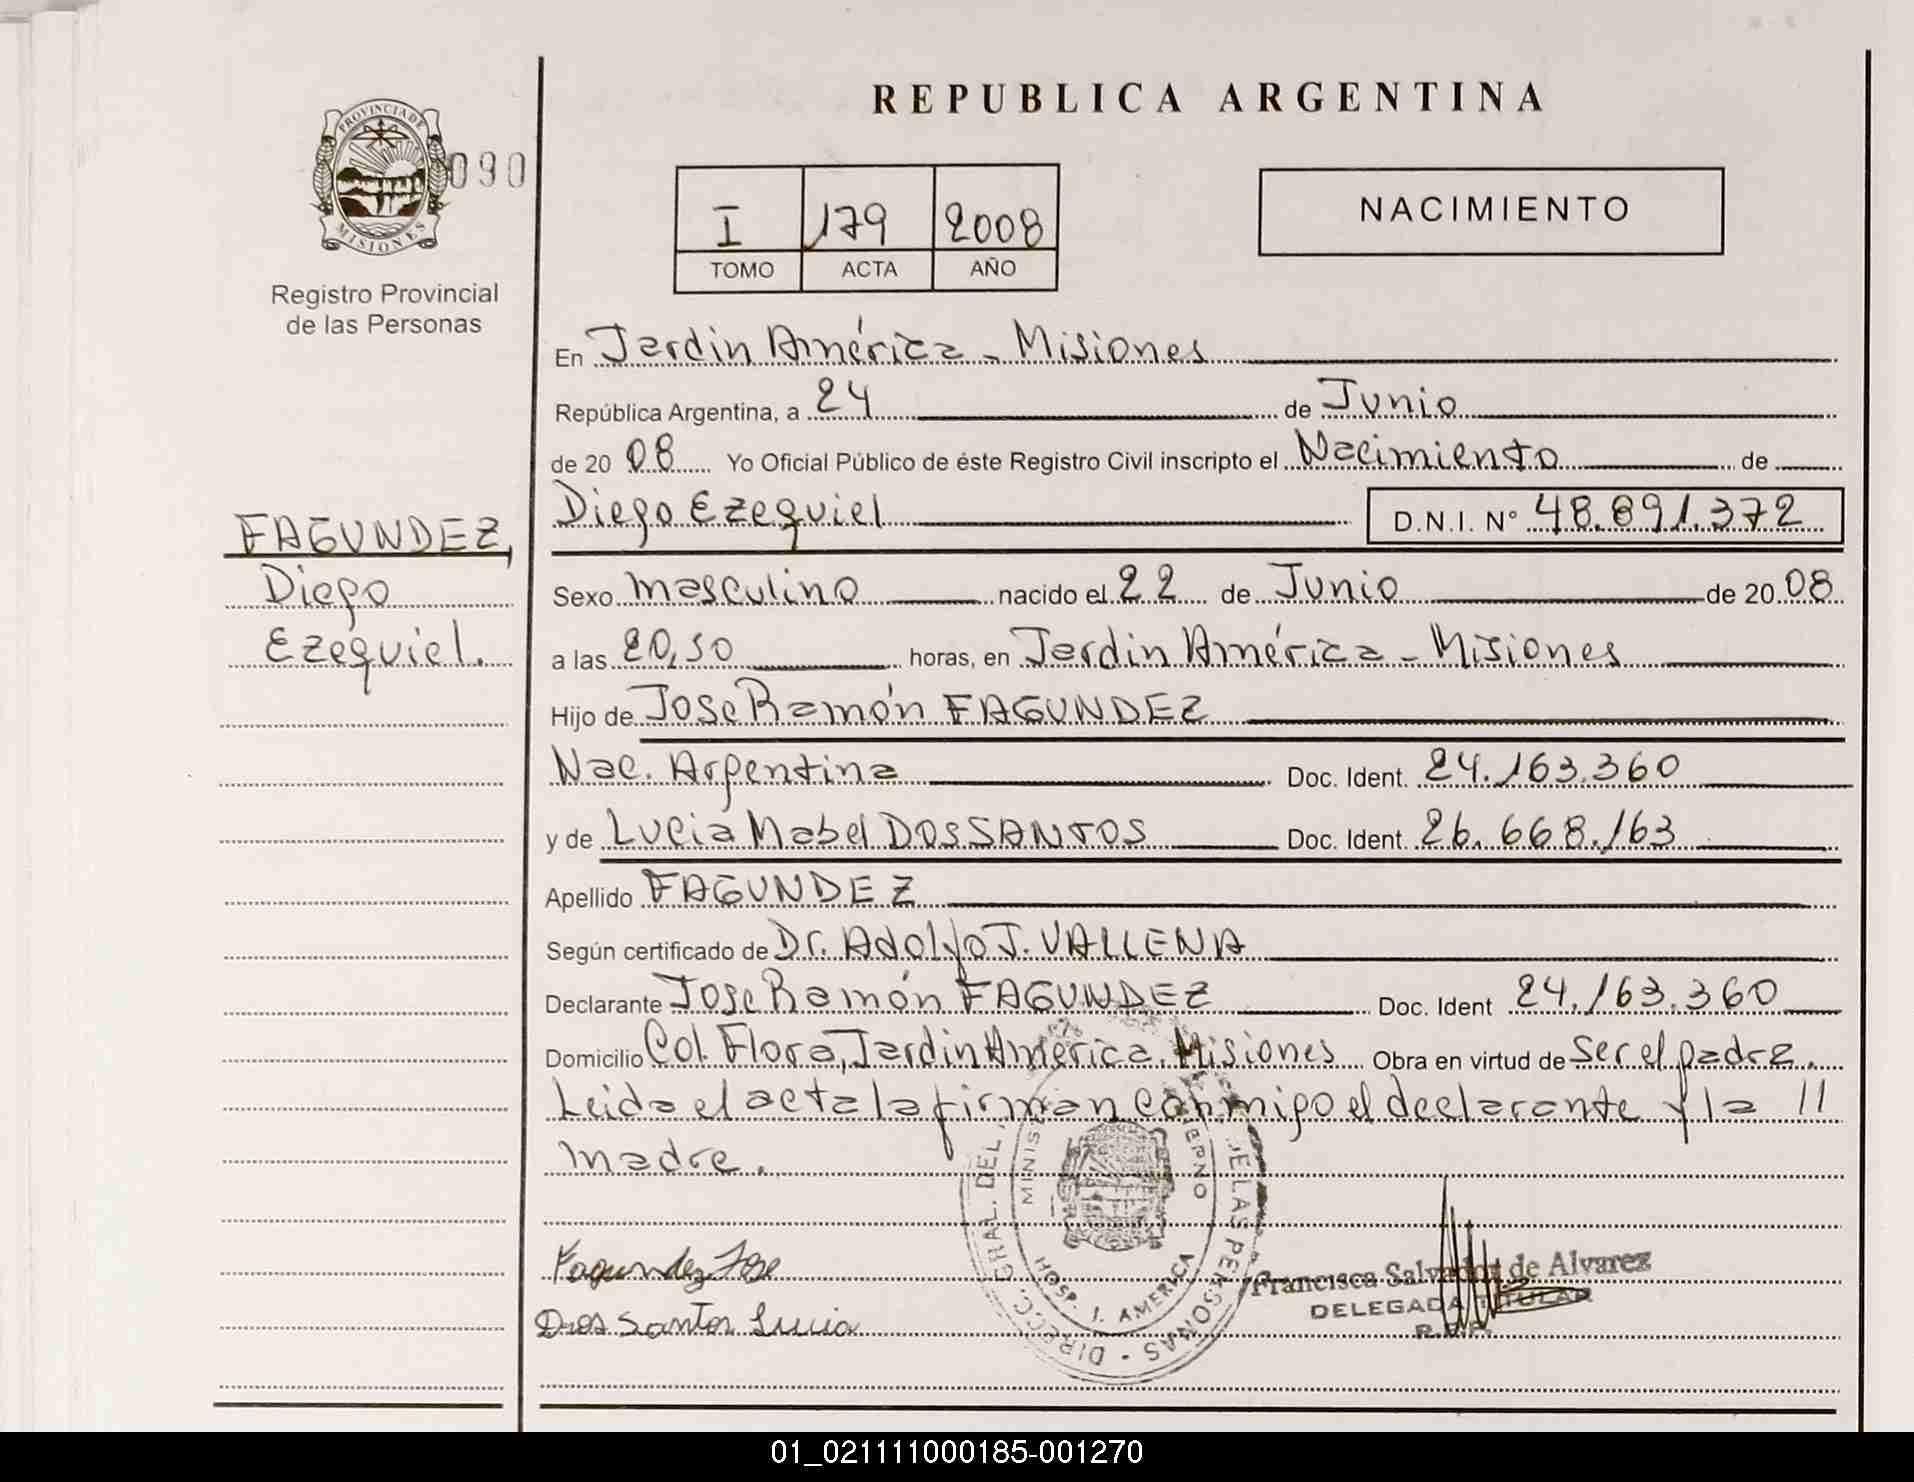 REPUBLICA ARGENTINA
PROVINCIA DE
MISIONES
090
Registro Provincial
de las Personas
I 179 2008
TOMO ACTA AÑO
NACIMIENTO
En Jardin América - Misiones
República Argentina, a 24 de Junio
de 20 08 Yo Oficial Público de éste Registro Civil inscripto el Nacimiento de
Diego Ezequiel D.N.I. N° 48.891.372
FAGUNDEZ,
Diego
Ezequiel.
Sexo masculino nacido el 22 de Junio de 20 08
a las 20,50 horas, en Jardin América - Misiones
Hijo de Jose Ramón FAGUNDEZ
Nac. Argentina Doc. Ident. 24.163.360
y de Lucia Mabel DOS SANTOS Doc. Ident. 26.668.163
Apellido FAGUNDEZ
Según certificado de Dr. Adolfo J. VALLENA
Declarante Jose Ramón FAGUNDEZ Doc. Ident 24.163.360
Domicilio Col. Flora, Jardin América, Misiones Obra en virtud de Ser el padre.
Leida el acta la firman conmigo el declarante y la //
madre.
DIRECC. GRAL. DEL DE LAS PERSONAS
HOSP. J. AMERICA
Fagundez Jose
Dos Santos Lucia
Francisca Salvador de Alvarez
DELEGADA TITULAR
R.P.P.
01_021111000185-001270